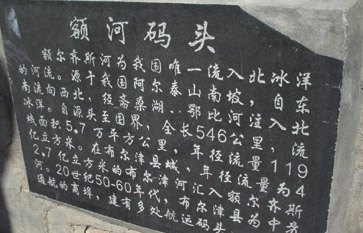 额河码头
额尔齐斯河为我国唯一流入北冰洋
的河流。源于我国阿尔泰山南坡，自东北
南流向西北，径斋桑湖…鄂比河，注入北
冰洋。自源头至国界，全长546公里，流
域面积5.7万平方公里，年径流量119
亿立方米。在布尔津县城，年径流量为4
2.7亿立方米的布尔津河汇入额尔齐斯
河。20世纪50-60年代，布尔津县为中苏
通航的商埠，建有多处航运码头